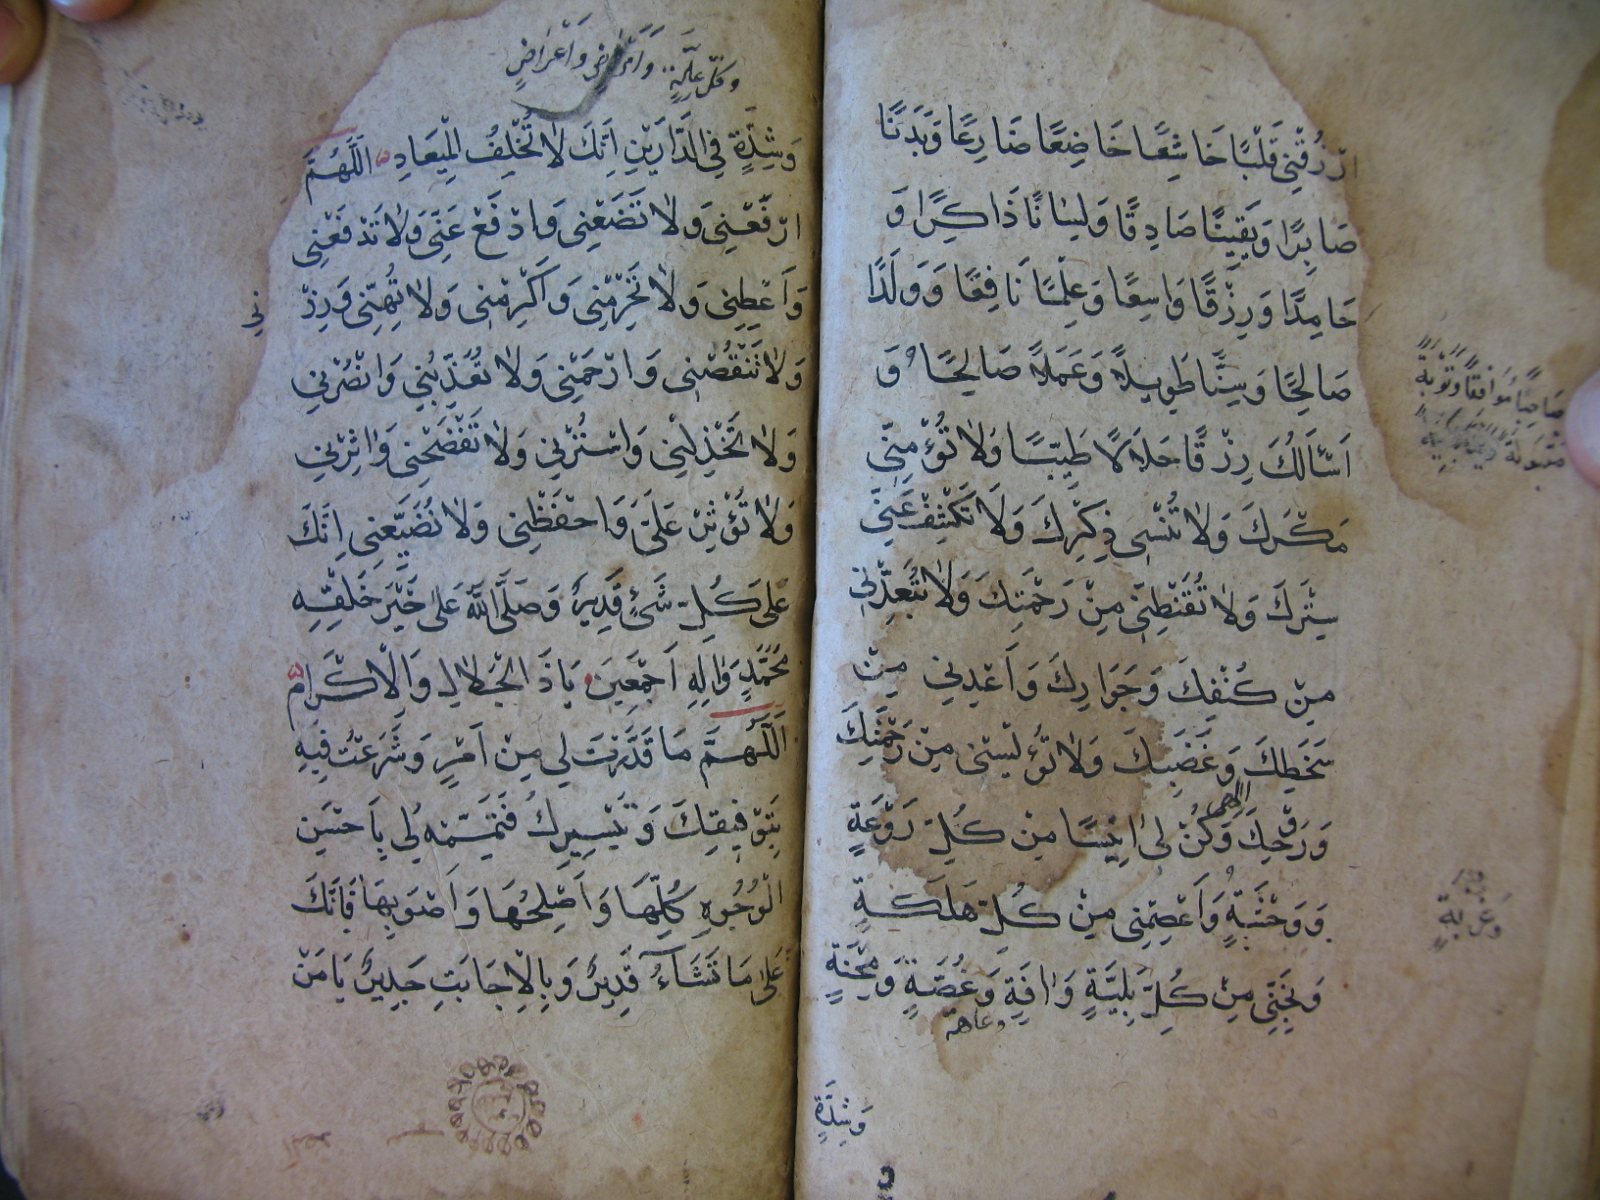 ارْزُقْنِي قَلْبًا خَاشِعًا خَاضِعًا ضَارِعًا وَبَدَنًا
صَابِرًا وَيَقِينًا صَادِقًا وَلِسَانًا ذَاكِرًا وَ
حَامِدًا وَرِزْقًا وَاسِعًا وَعِلْمًا نَافِعًا وَوَلَدًا
صَالِحًا وَسِنًّا طَوِيلًا وَعَمَلًا صَالِحًا وَ
صَاحِبًا مُوَافِقًا وَتَوْبَةً
مَقْبُولَةً
اَسْأَلُكَ رِزْقًا حَلَالًا طَيِّبًا وَلَا تُؤْمِنِّي
مَكْرَكَ وَلَا تُنْسِي ذِكْرِكَ وَلَا تَكْشِفْ عَنِّي
سِتْرَكَ وَلَا تُقَنِّطْنِي مِنْ رَحْمَتِكَ وَلَا تُبَعِّدْنِي
مِنْ كَنَفِكَ وَجَوَارِكَ وَاَعْذِنِي مِنْ
سَخَطِكَ وَغَضَبِكَ وَلَا تُؤْيِسْنِي مِنْ رَحْمَتِكَ
وَرَوْحِكَ وَكُنْ لِي اَنِيسًا مِنْ كُلِّ رَوْعَةٍ
الهى
وَوَحْشَةٍ وَاَعْصِمْنِي مِنْ كُلِّ هَلَكَةٍ
وَغُرْبَةٍ
وَنَجِّنِي مِنْ كُلِّ بَلِيَّةٍ وَاٰفَةٍ وَغُصَّةٍ وَمِحْنَةٍ
وعاهة
وَشِدَّةٍ
وَكُلِّ عِلَّةٍ وَاَمْرَاضٍ وَاَعْرَاضٍ
وَشِدَّةٍ فِي الدَّارَيْنِ اِنَّكَ لَا تُخْلِفُ الْمِيعَادِ اَللّٰهُمَّ
ارْفَعْنِي وَلَا تَضَعْنِي وَادْفَعْ عَنِّي وَلَا تَدْفَعْنِي
وَاَعْطِنِي وَلَا تَحْرِمْنِي وَاَكْرِمْنِي وَلَا تُهِنِّي وَزِدْ
نِي
وَلَا تَنْقُصْنِي وَارْحَمْنِي وَلَا تُعَذِّبْنِي وَانْصُرْنِي
وَلَا تَخْذِلْنِي وَاسْتُرْنِي وَلَا تَفْضَحْنِي وَاٰثِرْنِي
وَلَا تُؤْثِرْ عَلَيَّ وَاحْفَظْنِي وَلَا تُضَيِّعْنِي اِنَّكَ
عَلَى كُلِّ شَيْءٍ قَدِيرٌ وَصَلَّى اللّٰهُ عَلَى خَيْرِ خَلْقِهِ
مُحَمَّدٍ وَاٰلِهِ اَجْمَعِينَ يَاذَا الْجَلَالِ وَالْاِكْرَامِ
اَللّٰهُمَّ مَا قَدَّرْتَ لِي مِنْ اَمْرٍ وَشَرَعْتُ فِيهِ
بِتَوْفِيقِكَ وَتَيْسِيرِكَ فَتَمِّمْهُ لِي بِاَحْسَنِ
الْوُجُوهِ كُلِّهَا وَاَصْلَحِهَا وَاَصْوَبِهَا فَاِنَّكَ
عَلَى مَا تَشَآءُ قَدِيرٌ وَبِالْاِجَابَتِ جَدِيرٌ يَا مَنْ